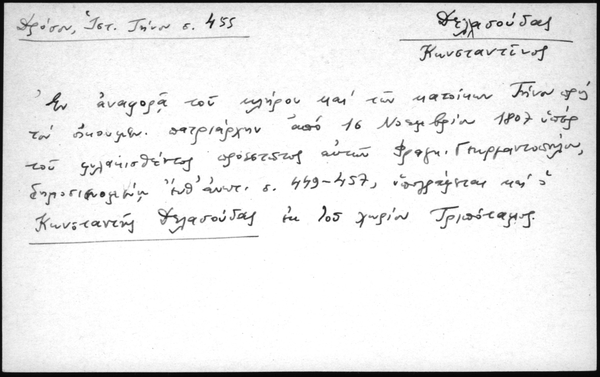 Δρόσου, Ἱστ. Τήνου σ. 455
Δελασούδας
Κωνσταντῖνος
Ἐν ἀναφορᾷ τοῦ κλήρου καὶ τῶν κατοίκων Τήνου πρὸς
τὸν οἰκουμεν. πατριάρχην ἀπὸ 16 Νοεμβρίου 1807 ὑπὲρ
τοῦ φυλακισθέντος προεστῶτος αὐτῶν Φραγκ.
δημοσιευομένῃ ἔνθ' ἀνωτ. σ. 449-457, ὑπογράφεται καὶ ὁ
Κωνσταντῆς Δελασούδας ἐκ τοῦ χωρίου Τριπόταμος.